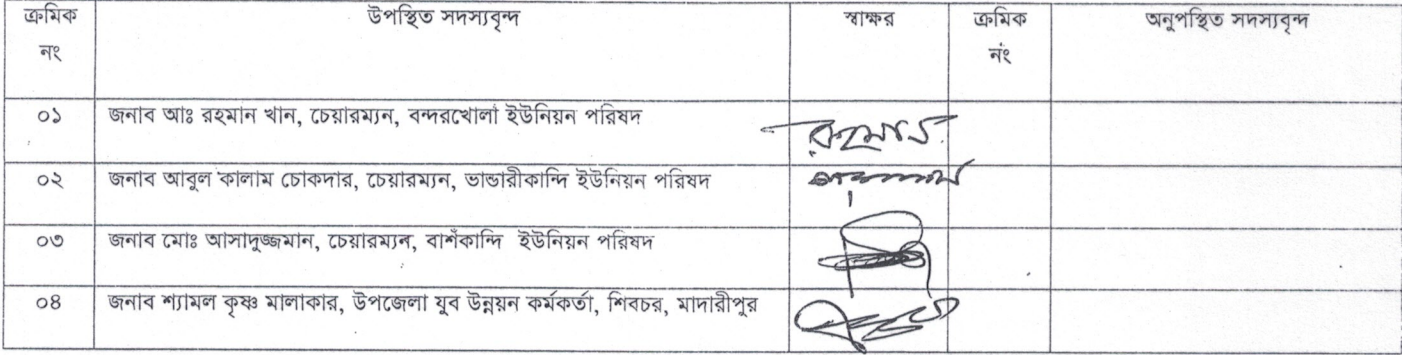 ক্রমিক নং উপস্থিত সদস্যবৃন্দ স্বাক্ষর ক্রমিক নং অনুপস্থিত সদস্যবৃন্দ
০১ জনাব আঃ রহমান খান, চেয়ারম্যন, বন্দরখোলা ইউনিয়ন পরিষদ
০২ জনাব আবুল কালাম চোকদার, চেয়ারম্যন, ভান্ডারীকান্দি ইউনিয়ন পরিষদ
০৩ জনাব মোঃ আসাদুজ্জমান, চেয়ারম্যন, বাশঁকান্দি ইউনিয়ন পরিষদ
০৪ জনাব শ্যামল কৃষ্ণ মালাকার, উপজেলা যুব উন্নয়ন কর্মকর্তা, শিবচর, মাদারীপুর